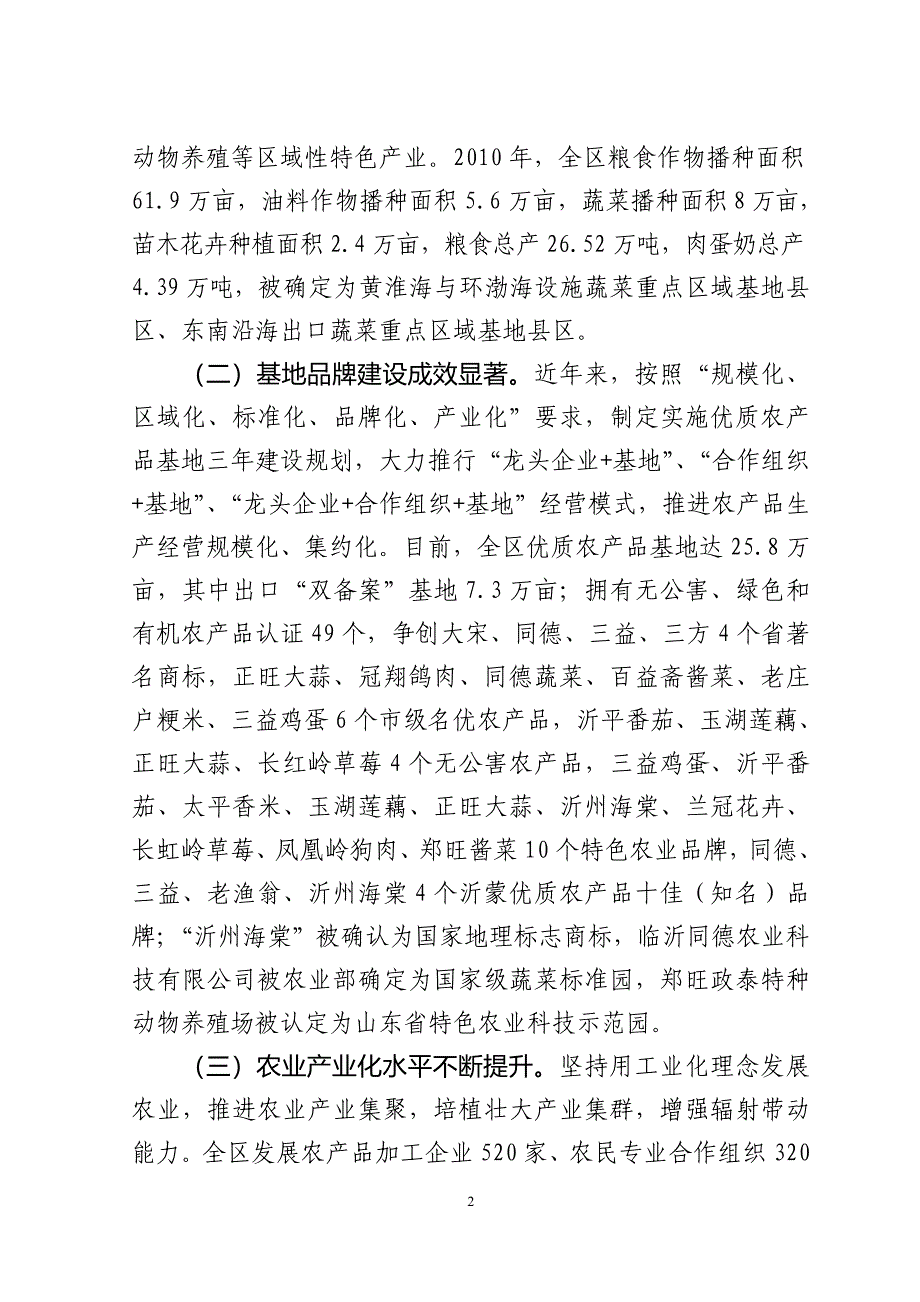 动物养殖等区域性特色产业。2010 年，全区粮食作物播种面积
61.9 万亩，油料作物播种面积 5.6 万亩，蔬菜播种面积 8 万亩，
苗木花卉种植面积 2.4 万亩，粮食总产 26.52 万吨，肉蛋奶总产
4.39 万吨，被确定为黄淮海与环渤海设施蔬菜重点区域基地县
区、东南沿海出口蔬菜重点区域基地县区。
（二）基地品牌建设成效显著。近年来，按照“规模化、
区域化、标准化、品牌化、产业化”要求，制定实施优质农产
品基地三年建设规划，大力推行“龙头企业+基地”、“合作组织
+基地”、“龙头企业+合作组织+基地”经营模式，推进农产品生
产经营规模化、集约化。目前，全区优质农产品基地达 25.8 万
亩，其中出口“双备案”基地 7.3 万亩；拥有无公害、绿色和
有机农产品认证 49 个，争创大宋、同德、三益、三方 4 个省著
名商标，正旺大蒜、冠翔鸽肉、同德蔬菜、百益斋酱菜、老庄
户粳米、三益鸡蛋 6 个市级名优农产品，沂平番茄、玉湖莲藕、
正旺大蒜、长红岭草莓 4 个无公害农产品，三益鸡蛋、沂平番
茄、太平香米、玉湖莲藕、正旺大蒜、沂州海棠、兰冠花卉、
长虹岭草莓、凤凰岭狗肉、郑旺酱菜 10 个特色农业品牌，同德、
三益、老渔翁、沂州海棠 4 个沂蒙优质农产品十佳（知名）品
牌；“沂州海棠”被确认为国家地理标志商标，临沂同德农业科
技有限公司被农业部确定为国家级蔬菜标准园，郑旺政泰特种
动物养殖场被认定为山东省特色农业科技示范园。
（三）农业产业化水平不断提升。坚持用工业化理念发展
农业，推进农业产业集聚，培植壮大产业集群，增强辐射带动
能力。全区发展农产品加工企业 520 家、农民专业合作组织 320
2